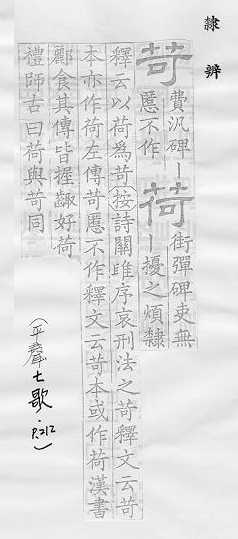 隸辨
苛費汎碑丨
慝不作
荷街彈碑吏無
丨擾之煩隸
釋云以荷為苛(按詩關雎序哀刑法之苛釋文云苛
本亦作荷左傳苛慝不作釋文云苛本或作荷漢書
酈食其傳皆握齱好荷
禮師古曰荷與苛同
(平聲七歌·P.212)